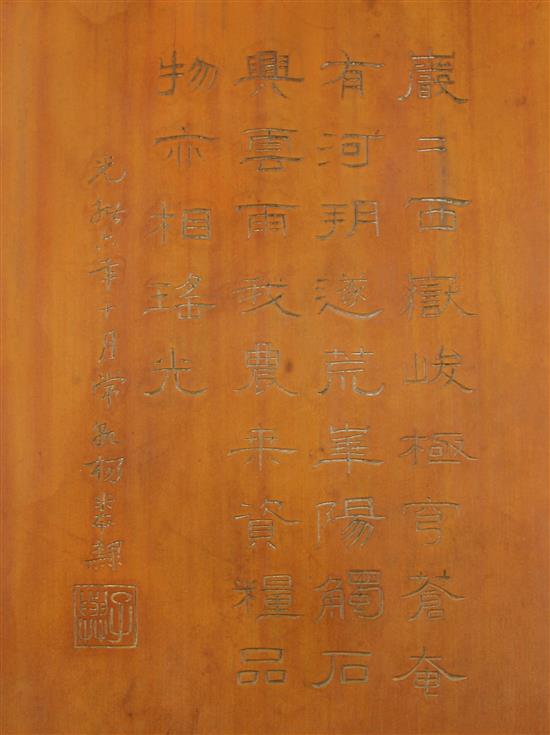 巖二西嶽峻極穹蒼奄
有河朔遂荒華陽觸石
興雲雨我農桒資糧品
物亦相瑤光
光緒六年十月常熟楊隸
子與